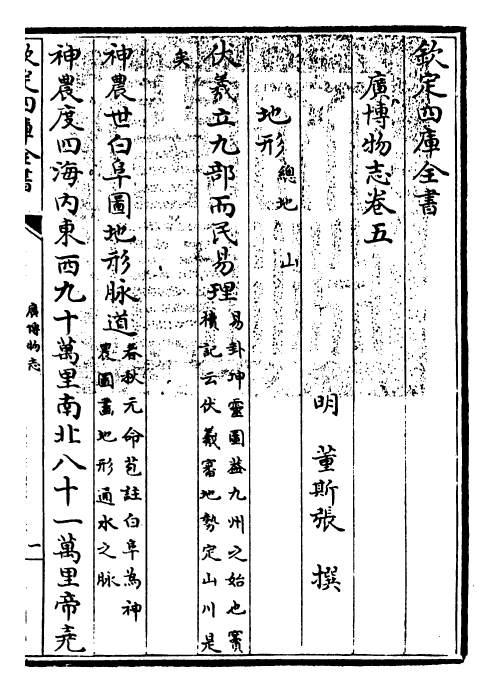 欽定四庫全書
廣博物志卷五
明 董斯張 撰
地形總地 山
伏羲立九部而民易理易卦坤靈圖葢九州之始也寳
櫝記云伏羲審地勢定山川是
矣
神農世白阜圖地形脉道春秋元命苞註白阜為神
農圖畫地形通水之脉
神農度四海內東西九十萬里南北八十一萬里帝堯
欽定四庫全書
廣博物志
一